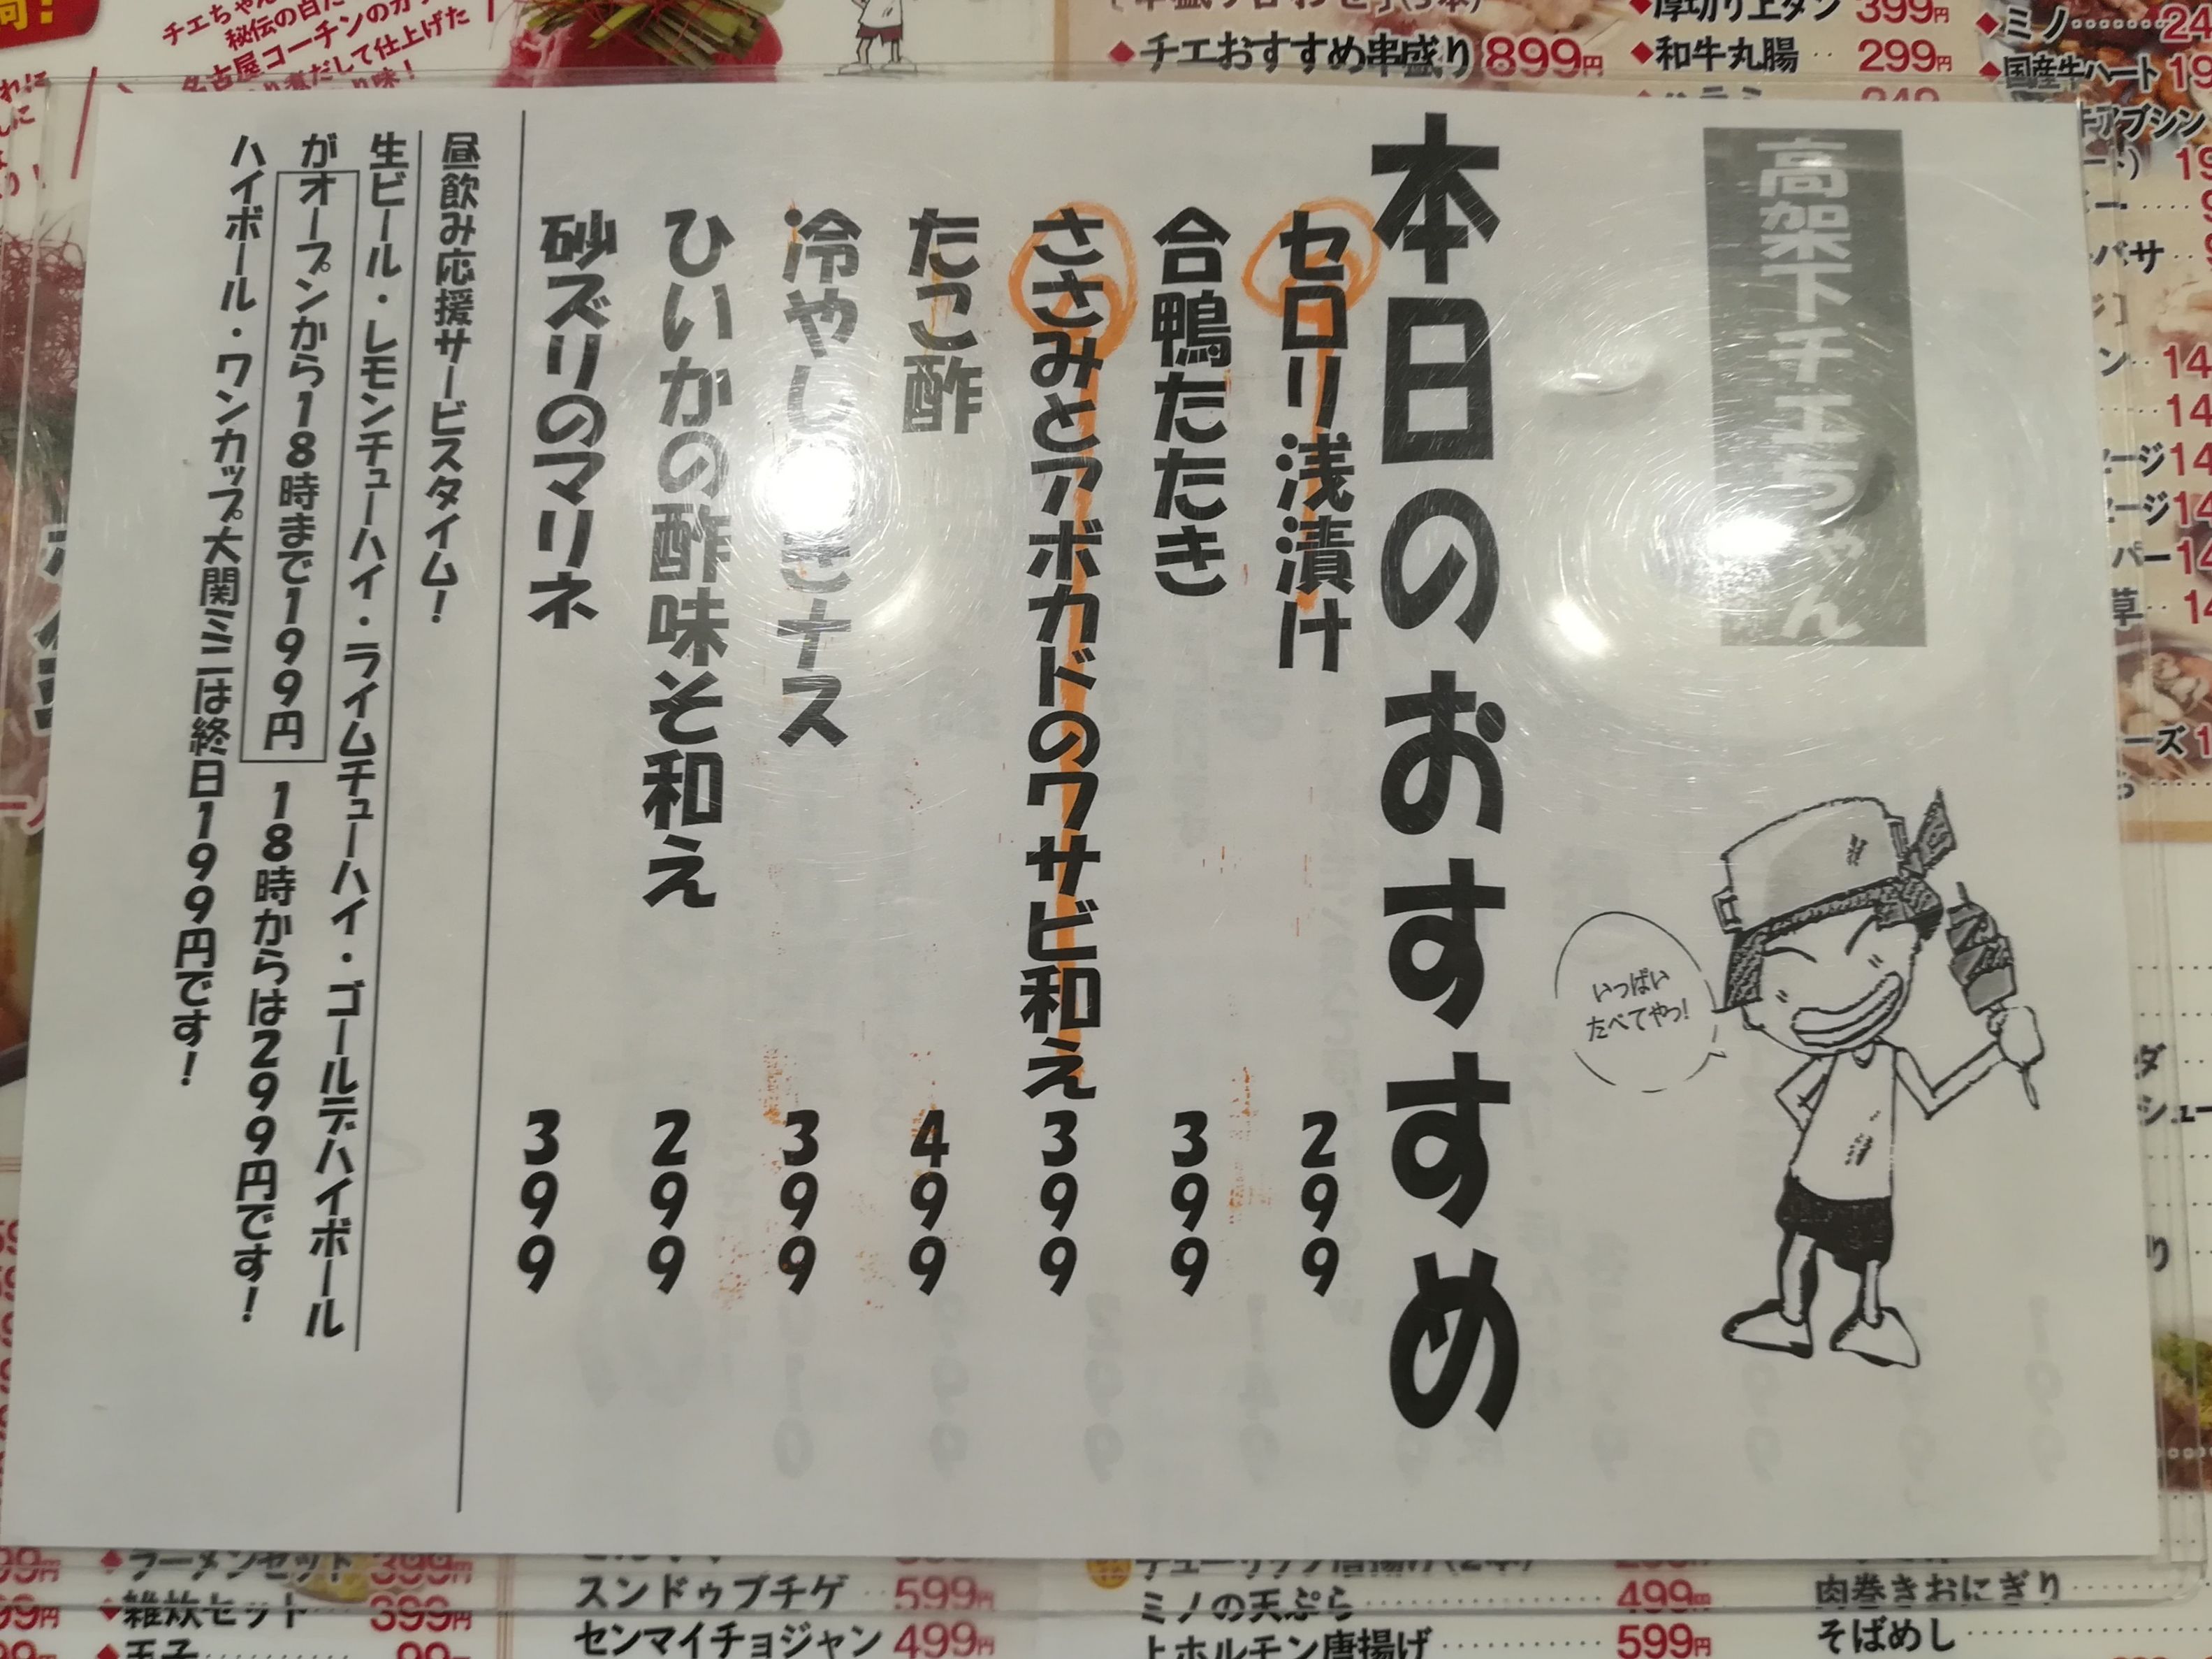 高架下チエちゃん
いっぱい
たべてやっ!
本日のおすすめ
セロリ浅漬け 299
合鴨たたき 399
ささみとアボカドのワサビ和え 399
たこ酢 499
冷やし きナス 399
ひいかの酢味そ和え 299
砂ズリのマリネ 399
昼飲み応援サービスタイム!
生ビール・レモンチューハイ・ライムチューハイ・ゴールデハイボール
がオープンから18時まで199円 18時からは299円です!
ハイボール・ワンカップ大関ミニは終日199円です!
チエおすすめ串盛り 899円
厚切り上タン 399円
和牛丸腸 299円
ミノ
国産牛ハート
名古屋コーチンのガラ
ラーメンセット 399円
雑炊セット 399円
玉子 99
スンドゥブチゲ 599円
センマイチョジャン 499円
ミノの天ぷら 499円
上ホルモン唐揚げ 599円
肉巻きおにぎり
そばめし